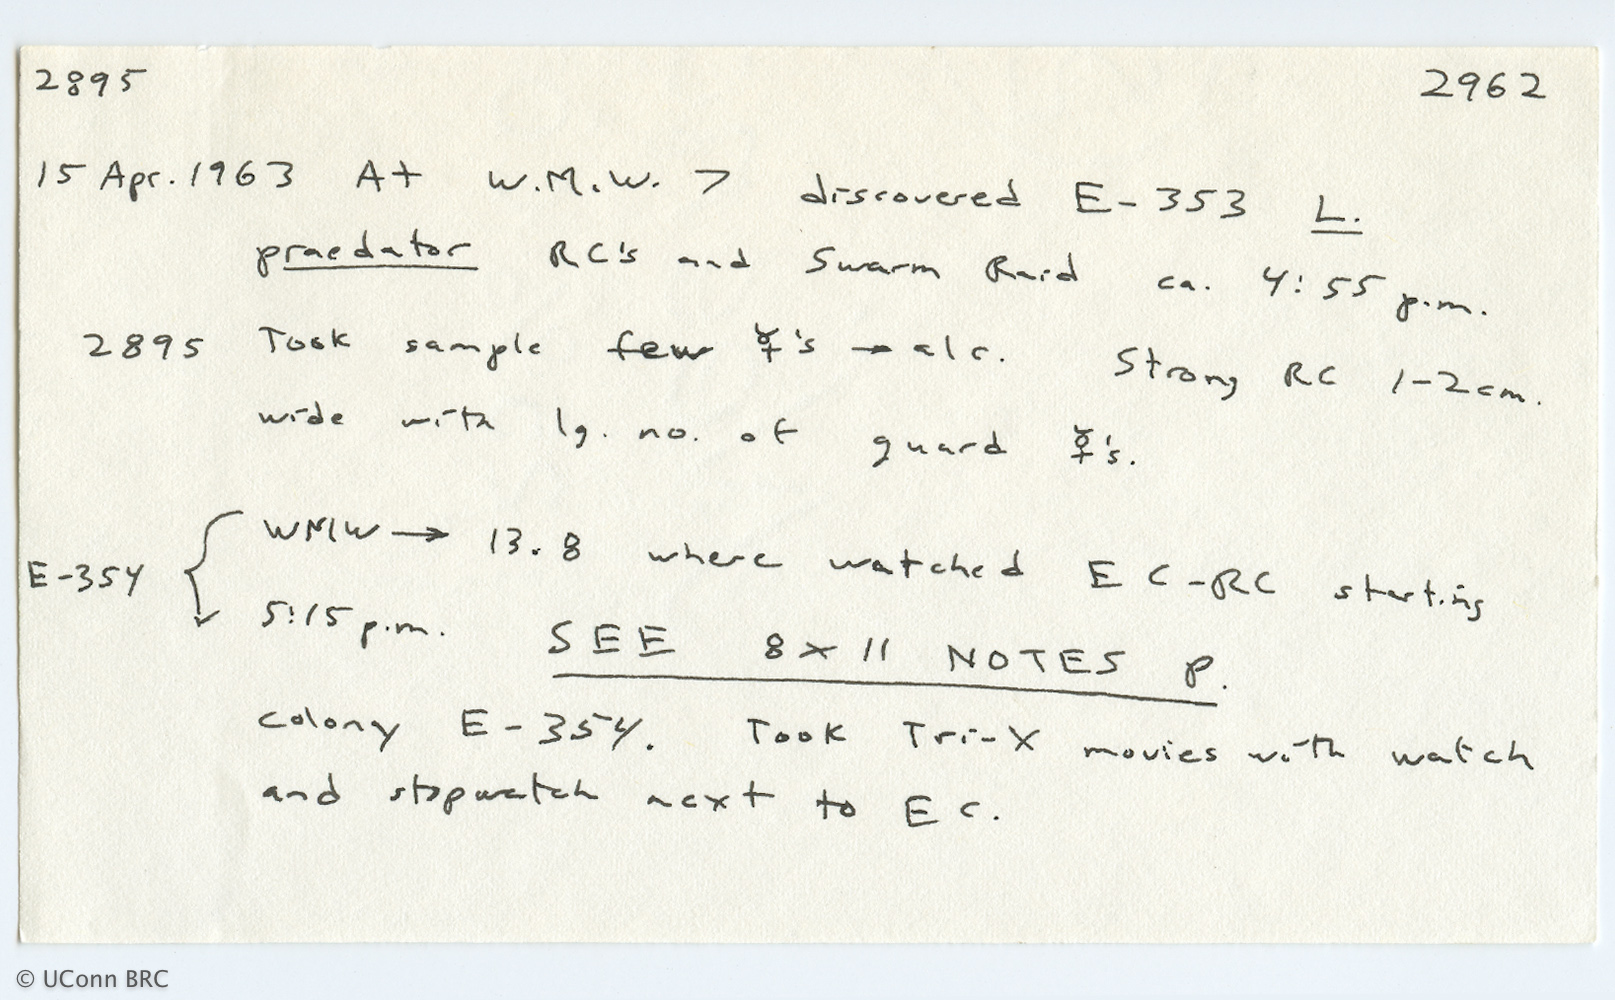 2895 2962
15 Apr. 1963 At W.M.W. 7 discovered E-353 L.
praedator RC's and Swarm Raid ca. 4:55 p.m.
2895 Took sample few ☿'s → alc. Strong RC 1-2 cm.
wide with lg. no. of guard ☿'s.
WMW → 13.8 where watched EC-RC starting
E-354
5:15 p.m. SEE 8x11 NOTES p.
colony E-354. Took Tri-X movies with watch
and stopwatch next to EC.
© UConn BRC